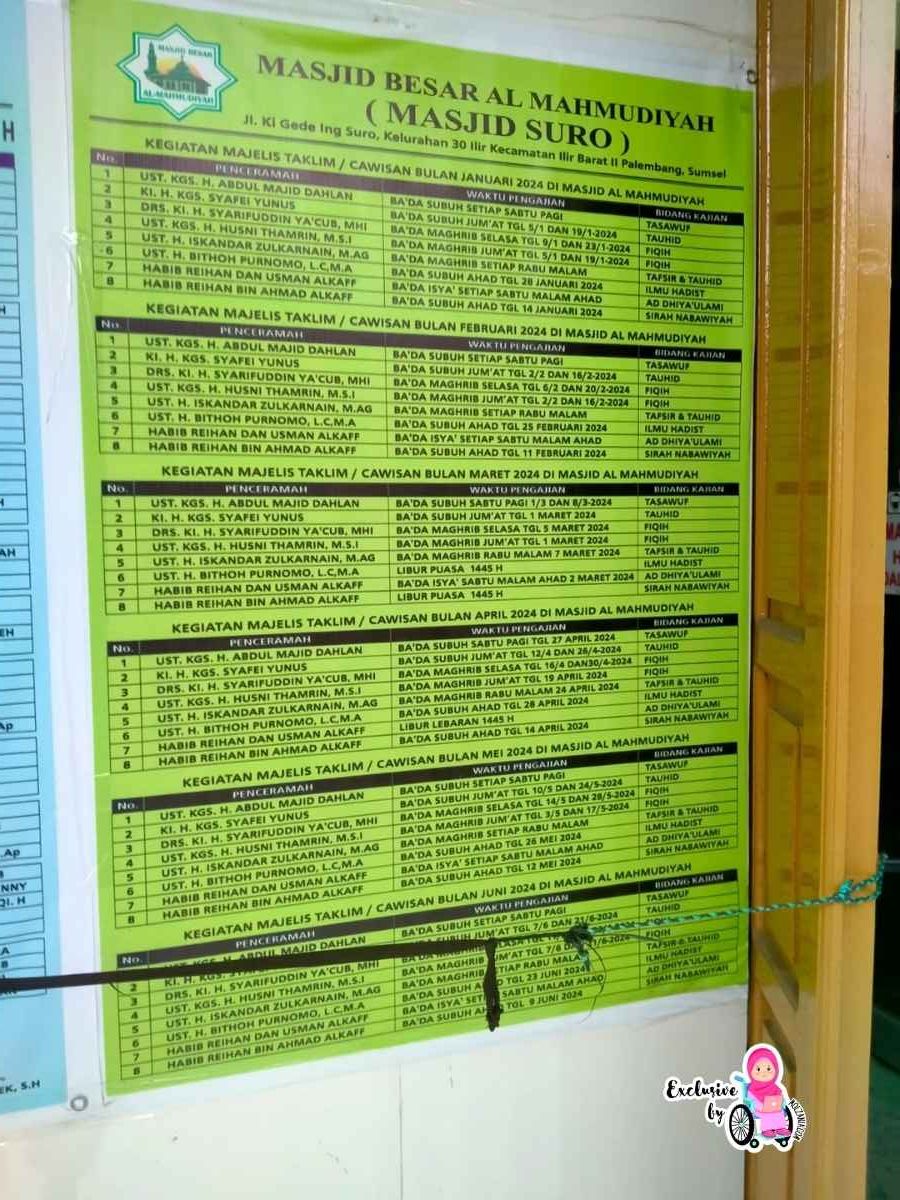 MASJID BESAR
AL-MAHMUDIYAH
MASJID BESAR AL MAHMUDIYAH
( MASJID SURO )
Jl. Ki Gede Ing Suro, Kelurahan 30 Ilir Kecamatan Ilir Barat II Palembang, Sumsel
KEGIATAN MAJELIS TAKLIM / CAWISAN BULAN JANUARI 2024 DI MASJID AL MAHMUDIYAH
No. PENCERAMAH WAKTU PENGAJIAN BIDANG KAJIAN
1 UST. KGS. H. ABDUL MAJID DAHLAN BA'DA SUBUH SETIAP SABTU PAGI TASAWUF
2 KI. H. KGS. SYAFEI YUNUS BA'DA SUBUH JUM'AT TGL 5/1 DAN 19/1-2024 TAUHID
3 DRS. KI. H. SYARIFUDDIN YA'CUB, MHI BA'DA MAGHRIB SELASA TGL 9/1 DAN 23/1-2024 FIQIH
4 UST. KGS. H. HUSNI THAMRIN, M.S.I BA'DA MAGHRIB JUM'AT TGL 5/1 DAN 19/1-2024 FIQIH
5 UST. H. ISKANDAR ZULKARNAIN, M.AG BA'DA MAGHRIB SETIAP RABU MALAM TAFSIR & TAUHID
6 UST. H. BITHOH PURNOMO, L.C,M.A BA'DA SUBUH AHAD TGL 28 JANUARI 2024 ILMU HADIST
7 HABIB REIHAN DAN USMAN ALKAFF BA'DA ISYA' SETIAP SABTU MALAM AHAD AD DHIYA'ULAMI
8 HABIB REIHAN BIN AHMAD ALKAFF BA'DA SUBUH AHAD TGL 14 JANUARI 2024 SIRAH NABAWIYAH
KEGIATAN MAJELIS TAKLIM / CAWISAN BULAN FEBRUARI 2024 DI MASJID AL MAHMUDIYAH
No. PENCERAMAH WAKTU PENGAJIAN BIDANG KAJIAN
1 UST. KGS. H. ABDUL MAJID DAHLAN BA'DA SUBUH SETIAP SABTU PAGI TASAWUF
2 KI. H. KGS. SYAFEI YUNUS BA'DA SUBUH JUM'AT TGL 2/2 DAN 16/2-2024 TAUHID
3 DRS. KI. H. SYARIFUDDIN YA'CUB, MHI BA'DA MAGHRIB SELASA TGL 6/2 DAN 20/2-2024 FIQIH
4 UST. KGS. H. HUSNI THAMRIN, M.S.I BA'DA MAGHRIB JUM'AT TGL 2/2 DAN 16/2-2024 FIQIH
5 UST. H. ISKANDAR ZULKARNAIN, M.AG BA'DA MAGHRIB SETIAP RABU MALAM TAFSIR & TAUHID
6 UST. H. BITHOH PURNOMO, L.C,M.A BA'DA SUBUH AHAD TGL 25 FEBRUARI 2024 ILMU HADIST
7 HABIB REIHAN DAN USMAN ALKAFF BA'DA ISYA' SETIAP SABTU MALAM AHAD AD DHIYA'ULAMI
8 HABIB REIHAN BIN AHMAD ALKAFF BA'DA SUBUH AHAD TGL 11 FEBRUARI 2024 SIRAH NABAWIYAH
KEGIATAN MAJELIS TAKLIM / CAWISAN BULAN MARET 2024 DI MASJID AL MAHMUDIYAH
No. PENCERAMAH WAKTU PENGAJIAN BIDANG KAJIAN
1 UST. KGS. H. ABDUL MAJID DAHLAN BA'DA SUBUH SABTU PAGI 1/3 DAN 8/3-2024 TASAWUF
2 KI. H. KGS. SYAFEI YUNUS BA'DA SUBUH JUM'AT TGL 1 MARET 2024 TAUHID
3 DRS. KI. H. SYARIFUDDIN YA'CUB, MHI BA'DA MAGHRIB SELASA TGL 5 MARET 2024 FIQIH
4 UST. KGS. H. HUSNI THAMRIN, M.S.I BA'DA MAGHRIB JUM'AT TGL 1 MARET 2024 FIQIH
5 UST. H. ISKANDAR ZULKARNAIN, M.AG BA'DA MAGHRIB RABU MALAM 7 MARET 2024 TAFSIR & TAUHID
6 UST. H. BITHOH PURNOMO, L.C,M.A LIBUR PUASA 1445 H ILMU HADIST
7 HABIB REIHAN DAN USMAN ALKAFF BA'DA ISYA' SABTU MALAM AHAD 2 MARET 2024 AD DHIYA'ULAMI
8 HABIB REIHAN BIN AHMAD ALKAFF LIBUR PUASA 1445 H SIRAH NABAWIYAH
KEGIATAN MAJELIS TAKLIM / CAWISAN BULAN APRIL 2024 DI MASJID AL MAHMUDIYAH
No. PENCERAMAH WAKTU PENGAJIAN BIDANG KAJIAN
1 UST. KGS. H. ABDUL MAJID DAHLAN BA'DA SUBUH SABTU PAGI TGL 27 APRIL 2024 TASAWUF
2 KI. H. KGS. SYAFEI YUNUS BA'DA SUBUH JUM'AT TGL 12/4 DAN 26/4-2024 TAUHID
3 DRS. KI. H. SYARIFUDDIN YA'CUB, MHI BA'DA MAGHRIB SELASA TGL 16/4 DAN30/4-2024 FIQIH
4 UST. KGS. H. HUSNI THAMRIN, M.S.I BA'DA MAGHRIB JUM'AT TGL 19 APRIL 2024 FIQIH
5 UST. H. ISKANDAR ZULKARNAIN, M.AG BA'DA MAGHRIB RABU MALAM 24 APRIL 2024 TAFSIR & TAUHID
6 UST. H. BITHOH PURNOMO, L.C,M.A BA'DA SUBUH AHAD TGL 28 APRIL 2024 ILMU HADIST
7 HABIB REIHAN DAN USMAN ALKAFF LIBUR LEBARAN 1445 H AD DHIYA'ULAMI
8 HABIB REIHAN BIN AHMAD ALKAFF BA'DA SUBUH AHAD TGL 14 APRIL 2024 SIRAH NABAWIYAH
KEGIATAN MAJELIS TAKLIM / CAWISAN BULAN MEI 2024 DI MASJID AL MAHMUDIYAH
No. PENCERAMAH WAKTU PENGAJIAN BIDANG KAJIAN
1 UST. KGS. H. ABDUL MAJID DAHLAN BA'DA SUBUH SETIAP SABTU PAGI TASAWUF
2 KI. H. KGS. SYAFEI YUNUS BA'DA SUBUH JUM'AT TGL 10/5 DAN 24/5-2024 TAUHID
3 DRS. KI. H. SYARIFUDDIN YA'CUB, MHI BA'DA MAGHRIB SELASA TGL 14/5 DAN 28/5-2024 FIQIH
4 UST. KGS. H. HUSNI THAMRIN, M.S.I BA'DA MAGHRIB JUM'AT TGL 3/5 DAN 17/5-2024 FIQIH
5 UST. H. ISKANDAR ZULKARNAIN, M.AG BA'DA MAGHRIB SETIAP RABU MALAM TAFSIR & TAUHID
6 UST. H. BITHOH PURNOMO, L.C,M.A BA'DA SUBUH AHAD TGL 26 MEI 2024 ILMU HADIST
7 HABIB REIHAN DAN USMAN ALKAFF BA'DA ISYA' SETIAP SABTU MALAM AHAD AD DHIYA'ULAMI
8 HABIB REIHAN BIN AHMAD ALKAFF BA'DA SUBUH AHAD TGL 12 MEI 2024 SIRAH NABAWIYAH
KEGIATAN MAJELIS TAKLIM / CAWISAN BULAN JUNI 2024 DI MASJID AL MAHMUDIYAH
No. PENCERAMAH WAKTU PENGAJIAN BIDANG KAJIAN
UST. KGS. H. ABDUL MAJID DAHLAN BA'DA SUBUH SETIAP SABTU PAGI TASAWUF
2 KI. H. KGS. BA'DA SUBUH JUM'AT TGL 7/6 DAN 21/6-2024 TAUHID
3 DRS. KI. H. SYARIFUDDIN YA'CUB, MHI BA'DA MAGHRIB SELASA TGL FIQIH
4 UST. KGS. H. HUSNI THAMRIN, M.S.I BA'DA MAGHRIB TGL 7/6 21/6-2024 FIQIH
5 UST. H. ISKANDAR ZULKARNAIN, M.AG BA'DA MAGHRIB SETIAP RABU MALAM TAFSIR & TAUHID
6 UST. H. BITHOH PURNOMO, L.C,M.A BA'DA SUBUH TGL 23 JUNI 2024 ILMU HADIST
7 HABIB REIHAN DAN USMAN ALKAFF BA'DA ISYA' SABTU MALAM AHAD AD DHIYA'ULAMI
8 HABIB REIHAN BIN AHMAD ALKAFF BA'DA SUBUH TGL 9 JUNI 2024 SIRAH NABAWIYAH
EK, S.H
Exclusive
by